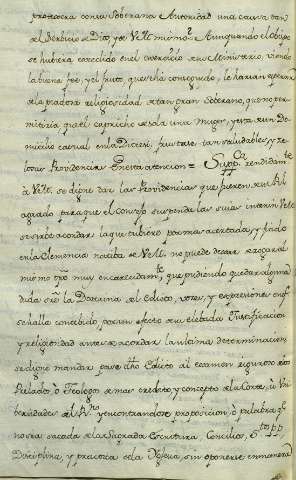 protexera con su Soberana Autoridad una causa tan
al Servicio de Dios, y de V. M. mismo. Aun quando el Obispo
se hubiera excedido en el exercicio de su Ministerio, viendo
la buena fee, y el fruto, que se ha conseguido, le harian esperar
de la piadosa religiosidad de tan gran Soberano, que no per-
mitiria que el capricho de sola una Muger, y
casual en la Diocesi, frustase tan saludables, y
Providencias. En esta atencion = Supp.ca rendidam.te
à V. M. se digne dar las Providencias que fueren de su Rl.
agrado para que el Consejo suspenda las suias interin V. M.
se sirve acordar la que tubiere por mas acertada, y fiado
en la Clemencia notoria de V. M. no puede dexar de rogar al
mismo tpo. muy encarecidam.te, que pudiendo quedar alguna
duda sobre la Doctrina del Edicto, voces, y expresiones en
se halla concebido por un efecto de su elebada Justificacion
y religiosidad antes de acordar la ultima determinacion
se digne mandar pase dho Edicto al examen riguroso de los
Prelados, ò Teologos de mas credito y concepto de la Corte, ù Uni-
versidades del R.no y encontrandose proposicion, ò palabra q.e
no sea sacada de la Sagrada Escritura, Concilios, S.tos PP.
Disciplina, y practica de la Yglesia, sin oponerse en manera